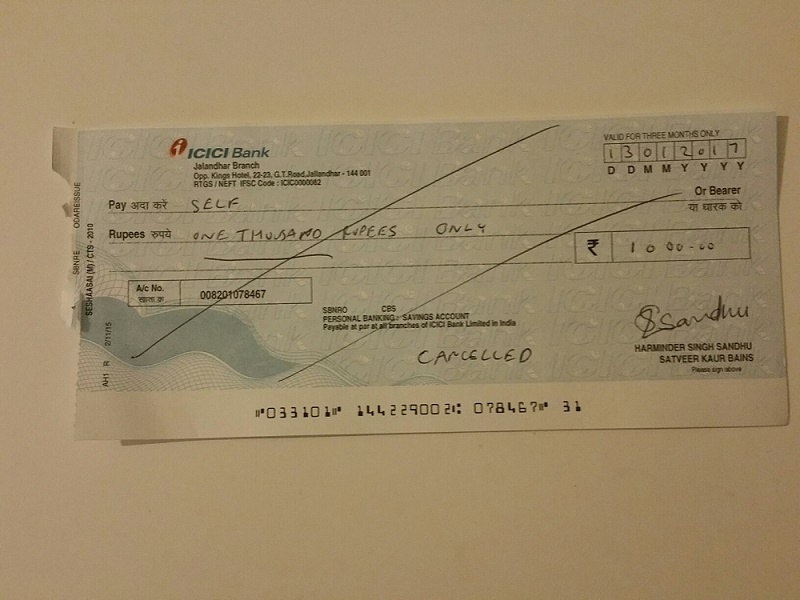 ICICI Bank
Jalandhar Branch
Opp. Kings Hotel, 22-23, G.T.Road,Jallandhar - 144 001
RTGS / NEFT IFSC Code : ICIC0000082
VALID FOR THREE MONTHS ONLY
1 3 0 1 2 0 1 7
D D M M Y Y Y Y
Pay अदा करें SELF
Or Bearer
या धारक को
Rupees रुपये ONE THOUSAND RUPEES ONLY
₹ 1000-00
A/c No.
खाता क्र.
008201078467
SBNRO CBS
PERSONAL BANKING:- SAVINGS ACCOUNT
Payable at par at all branches of ICICI Bank Limited in India
CANCELLED
SSandhu
HARMINDER SINGH SANDHU
SATVEER KAUR BAINS
Please sign above
⑈033101⑈ 144229002⑆ 078467⑈ 31
SESHAASAI (M) / CTS - 2010
SBNRE ODAREISSUE
AH1 R 2/11/15